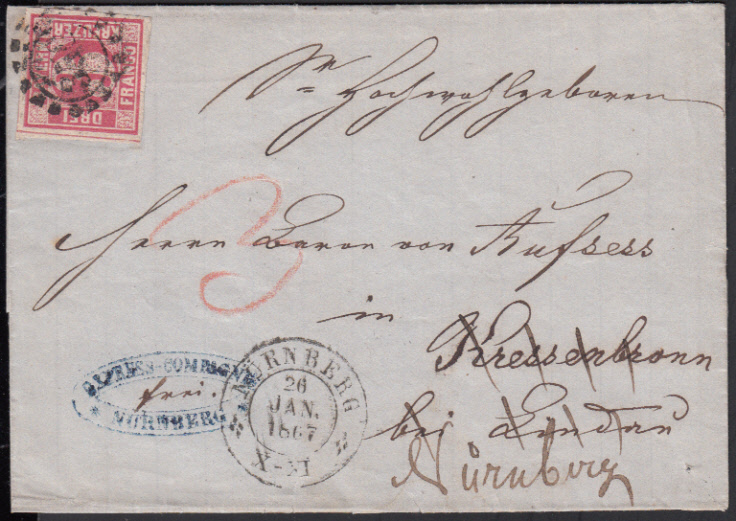 FRANCO
DREI
KREUZER
Sr Hochwohlgeboren
Herrn Baron von Aufsess
3
in
Kressenbronn
bei Lindau
Nürnberg
EXPRESS-COMPAGNIE
frei.
NÜRNBERG
NÜRNBERG
26
JAN.
1867
X-XI